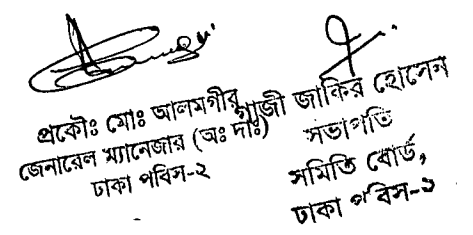 প্রকৌঃ মোঃ আলমগীর
জেনারেল ম্যানেজার (অঃ দাঃ)
ঢাকা পবিস-২
গাজী জাকির হোসেন
সভাপতি
সমিতি বোর্ড,
ঢাকা পবিস-১